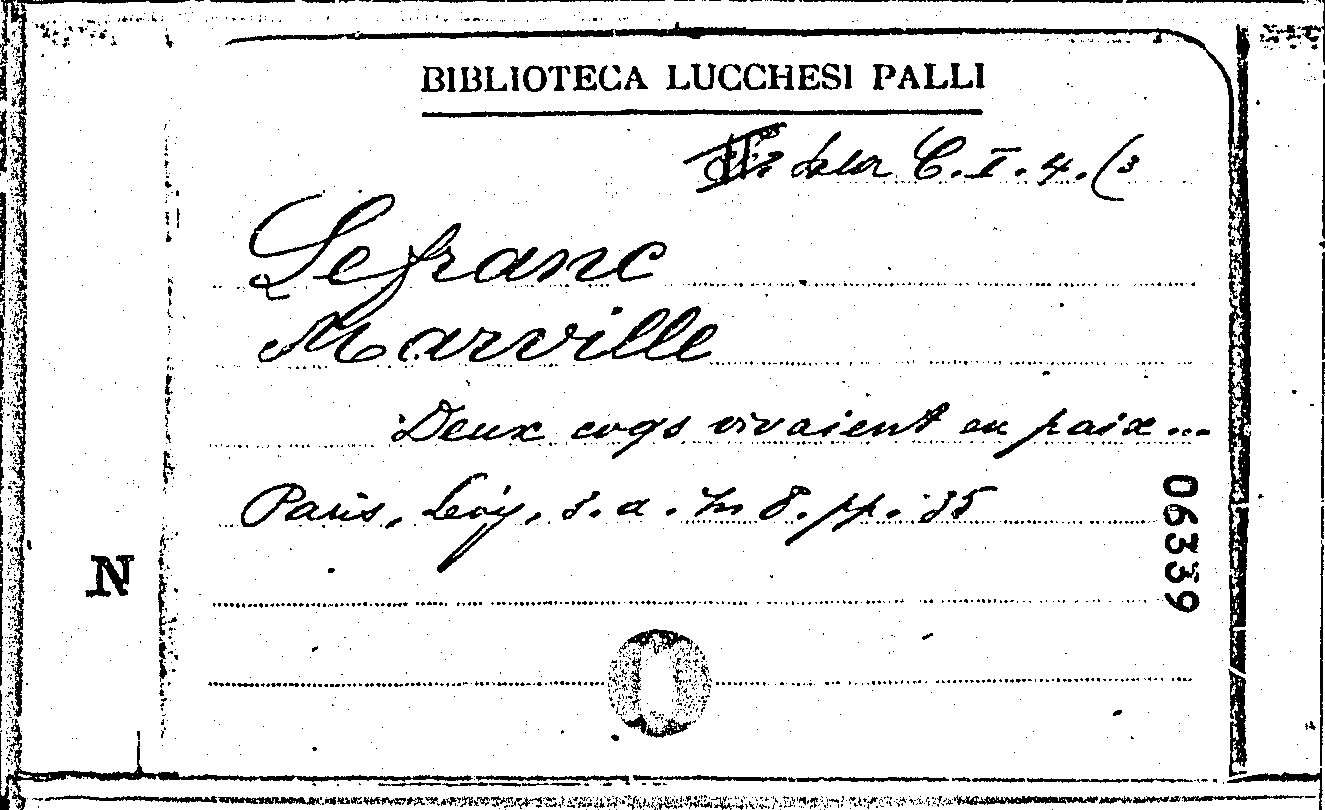 BIBLIOTECA LUCCHESI PALLI
Sala C.I.4.(3
Lefranc
Marville
Deux coqs vivaient en paix...
Paris, Lévy, s.a. In 8. pp. 35
06339
N